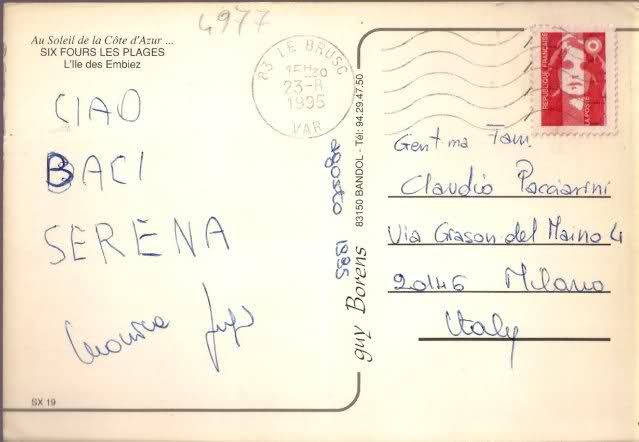 4977
Au Soleil de la Côte d'Azur ...
SIX FOURS LES PLAGES
L'Ile des Embiez
CIAO
BACI
SERENA
Monica
SX 19
83 LE BRUSC
15H30
23-8
1995
VAR
agosto 1995
guy Borens
83150 BANDOL - Tél: 94.29.47.50
REPUBLIQUE FRANÇAISE
LA POSTE
Gent.ma Fam.
Claudio Pacciarini
Via Giason del Maino 4
20146 Milano
Italy